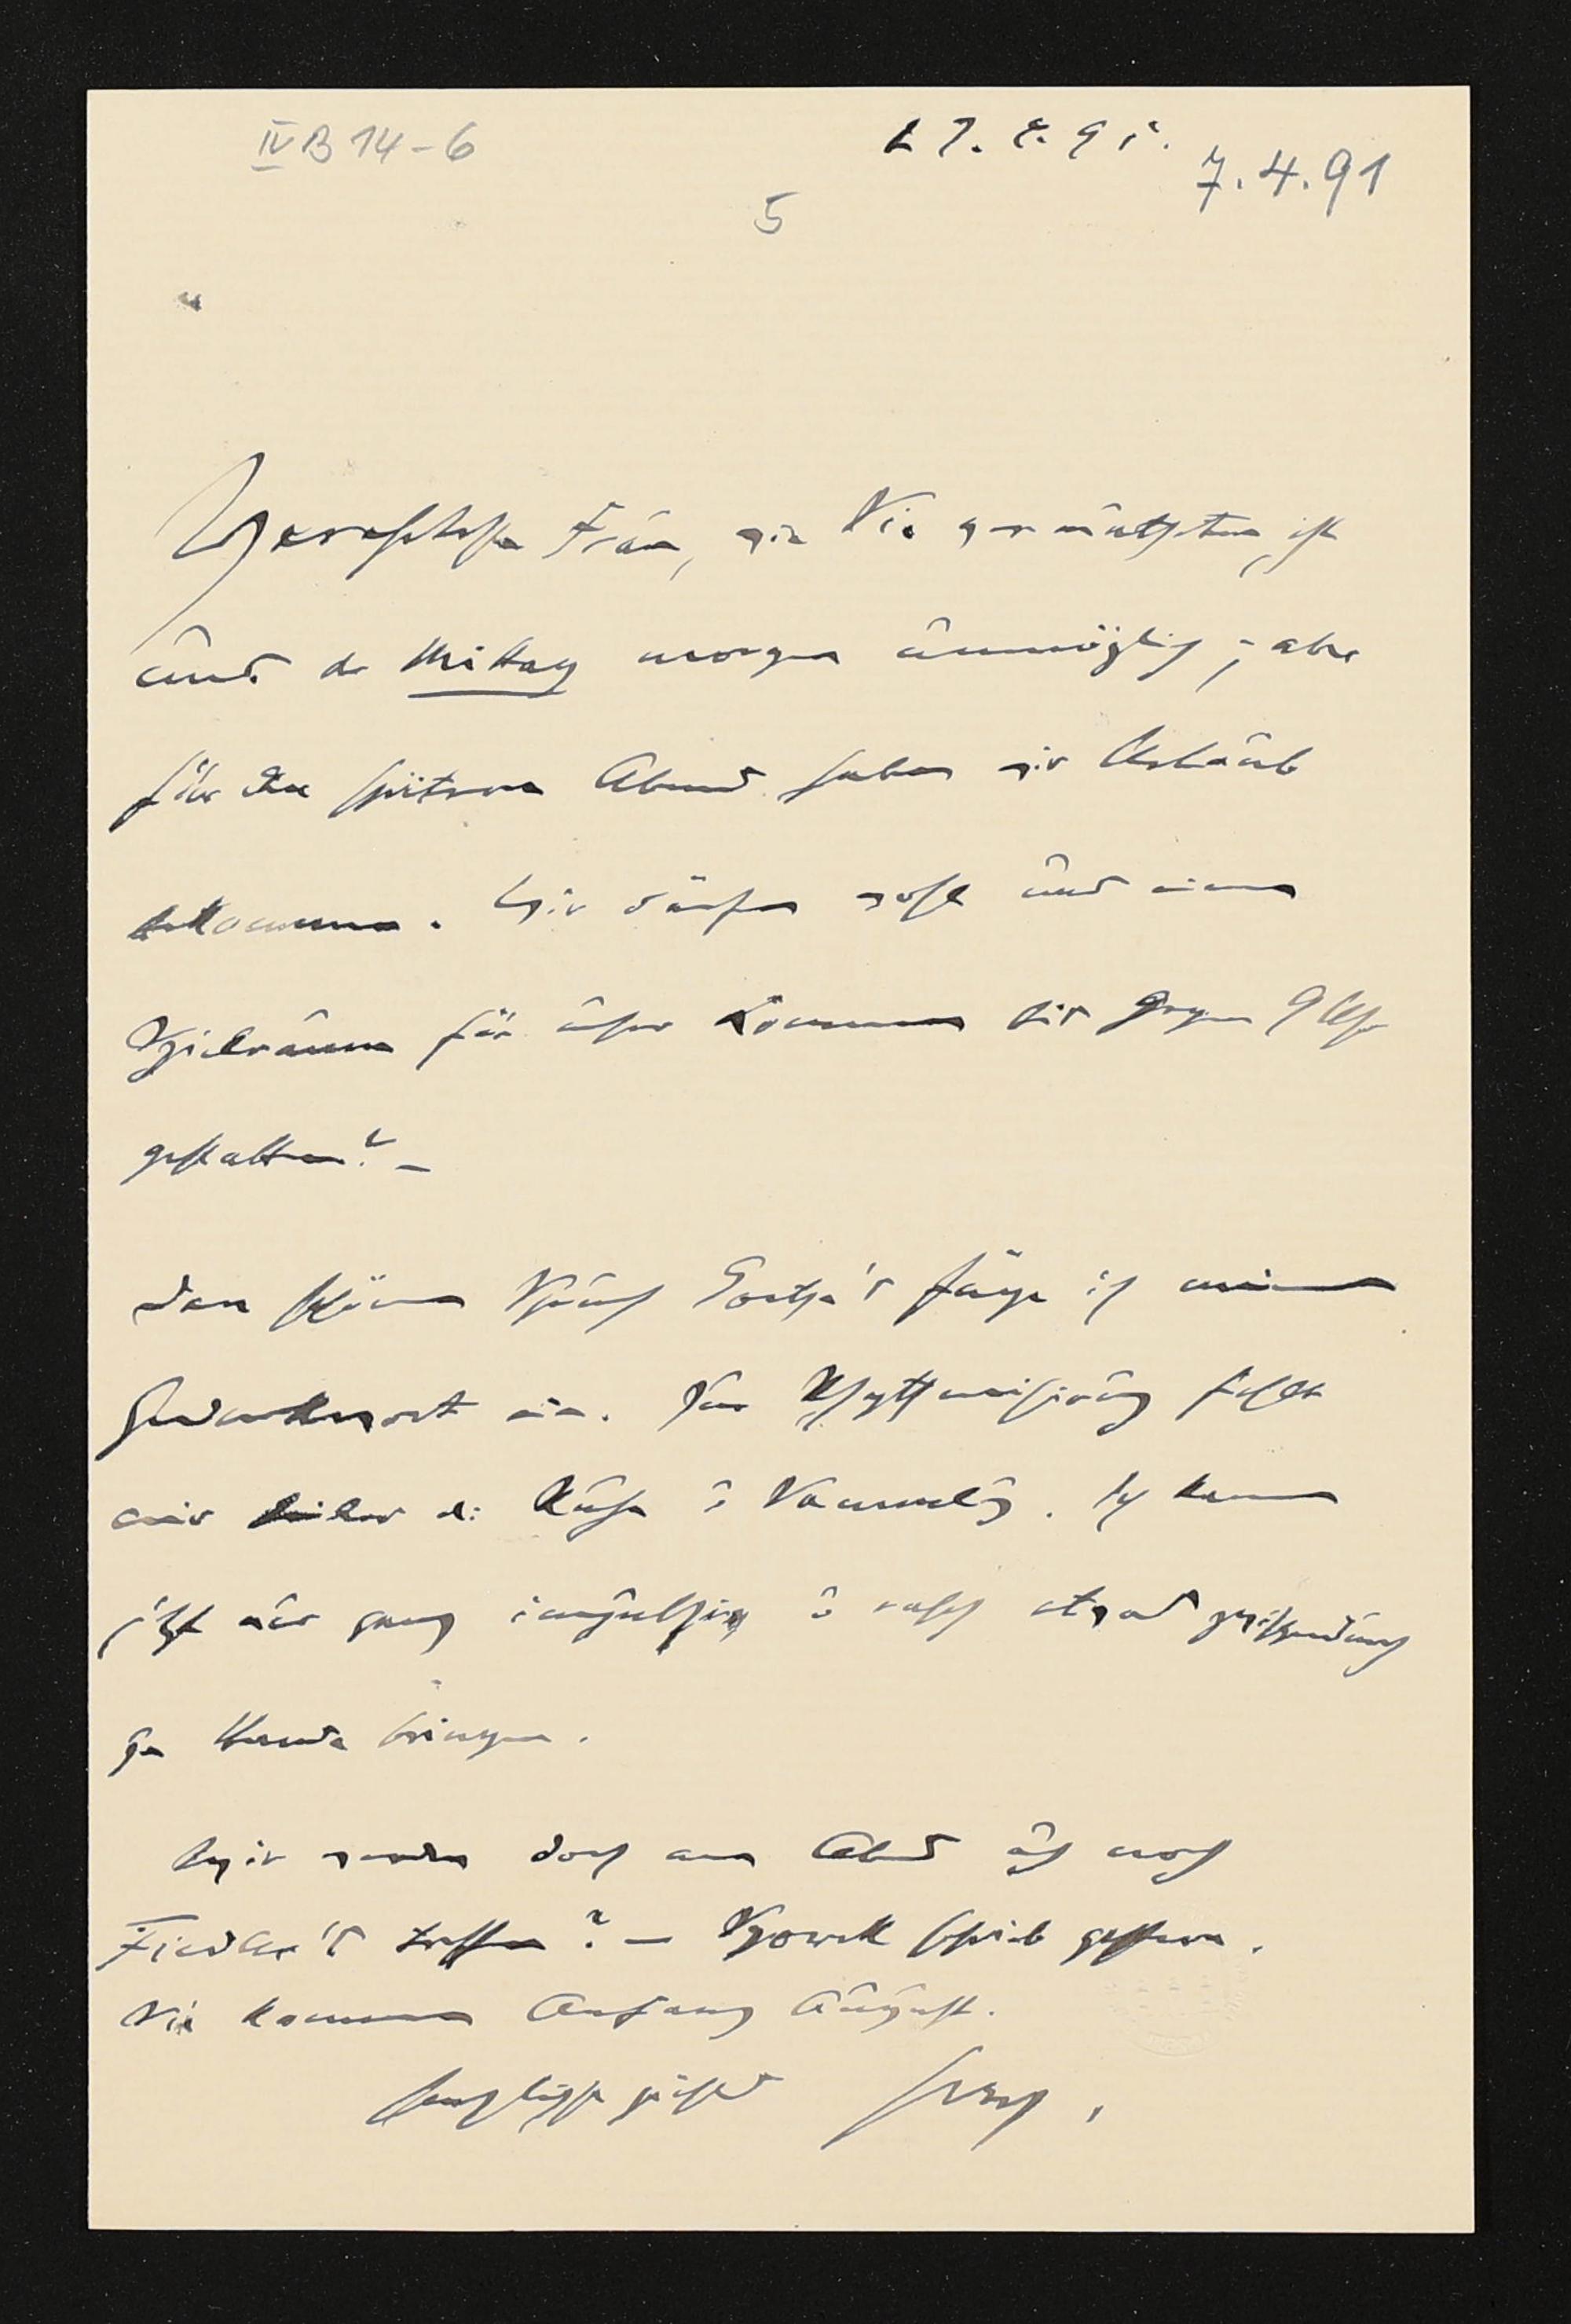 IV B 14-6
27. 7. 91.
7.4.91
5
Verehrteste Frau, wie Sie vermutheten, ist
uns der Mittag morgen unmöglich; aber
für den spätern Abend haben wir Urlaub
bekommen. Wir dürfen wohl uns einen
Spielraum für unser Kommen bis gegen 9 Uhr
gestatten? –
Den schönen Spruch Goethe's füge ich meinem
ein. Zur fehlt
mir leider die Ruhe u Sammlung. Ich kann
jetzt nur ganz u rasch etwas
zu Stande bringen.
Wir werden doch am Abend auch noch
Fiedler's treffen? – schrieb gestern.
Sie kommen Anfang August.
grüßend